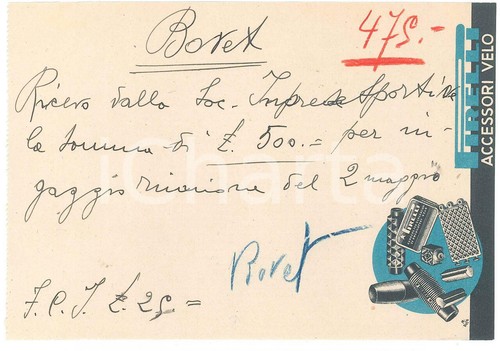 Bovet
475.-
Ricevo dalla Soc. Imprese Sportive
la somma di £. 500.= per in-
gaggio riunione del 2 maggio
Bovet
F.C.I £. 25 =
PIRELLI
ACCESSORI VELO
iCharta